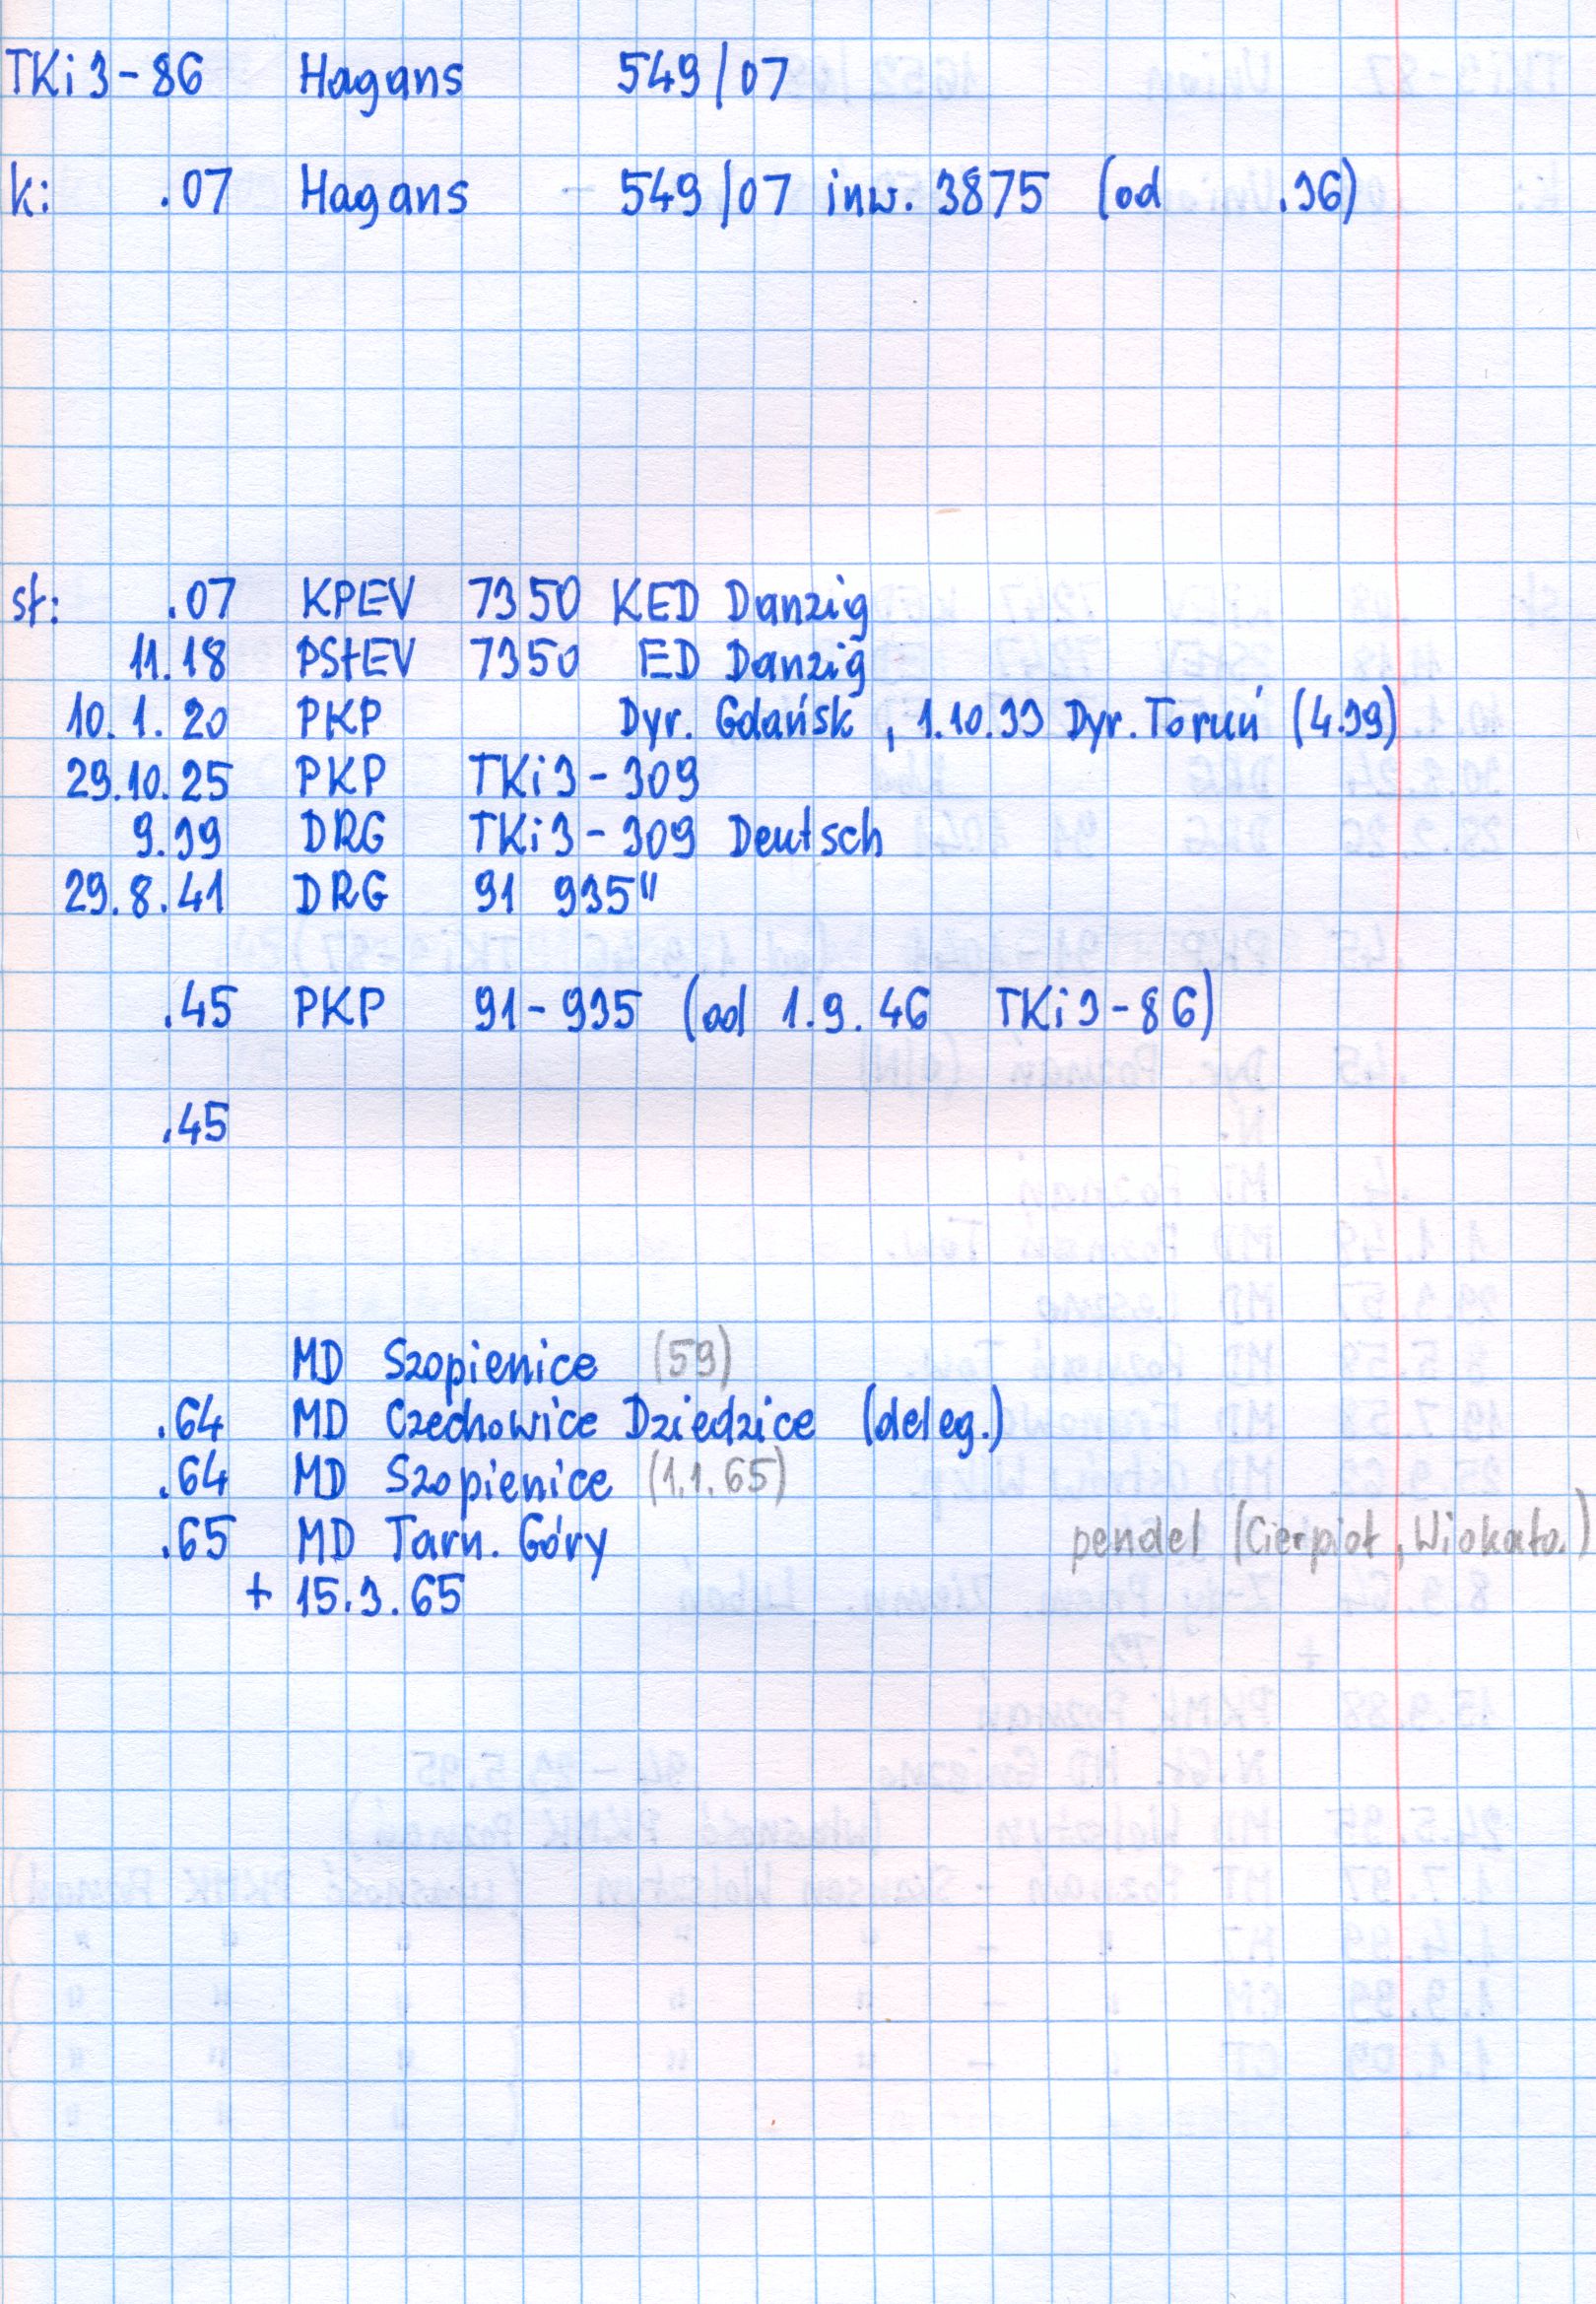 TKi3-86 Hagans 549/07
k: .07 Hagans 549/07 inw. 3875 (od .36)
st: .07 KPEV 7350 KED Danzig
11.18 PStEV 7350 ED Danzig
10.1.20 PKP Dyr. Gdańsk, 1.10.33 Dyr. Toruń (4.39)
29.10.25 PKP TKi3-309
9.39 DRG TKi3-309 Deutsch
29.8.41 DRG 91 935"
.45 PKP 91-935 (od 1.9.46 TKi3-86)
.45
MD Szopienice (59)
.64 MD Czechowice Dziedzice (deleg.)
.64 MD Szopienice (1.1.65)
.65 MD Tarn. Góry pendel (Cierpiot, Wiokato.)
+ 15.3.65